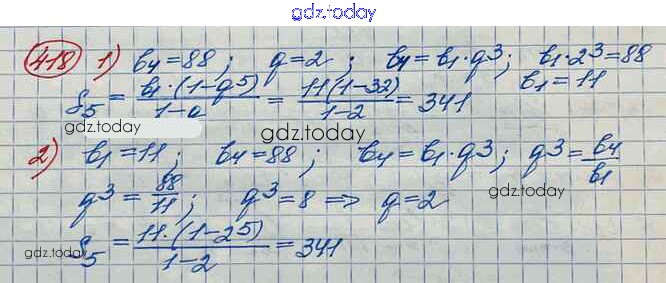 gdz.today
418 1) b₄=88; q=2; b₄=b₁·q³; b₁·2³=88
b₁=11
S₅ = b₁·(1-q⁵)/1-q = 11(1-32)/1-2 = 341
gdz.today
gdz.today
2) b₁=11; b₄=88; b₄=b₁·q³; q³=b₄/b₁
q³=88/11; q³=8 => q=2
gdz.today
S₅ = 11·(1-2⁵)/1-2 = 341
gdz.today